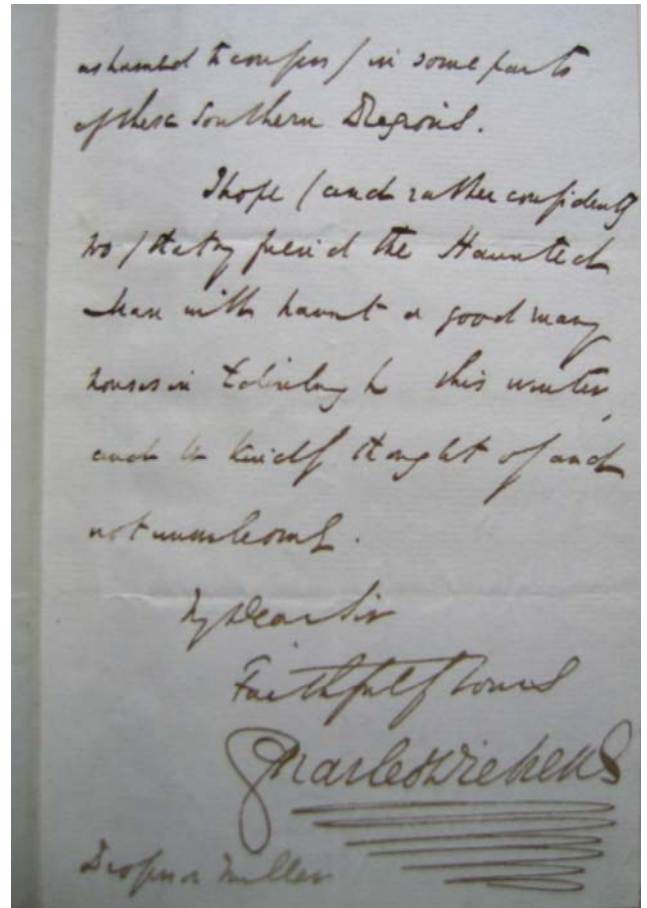 ashamed to confess / in some parts
of these Southern Regions.
I hope / and rather confidently
too / that my friend the Haunted
Man will haunt a good many
houses in Edinburgh this winter,
and be kindly thought of and
not unwelcome.
My Dear Sir
Faithfully Yours
Charles Dickens
Professor Miller